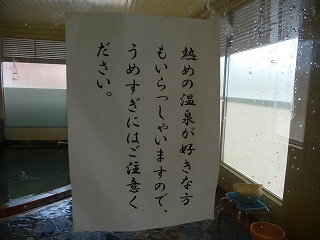 熱めの温泉が好きな方
もいらっしゃいますので、
うめすぎにはご注意く
ださい。